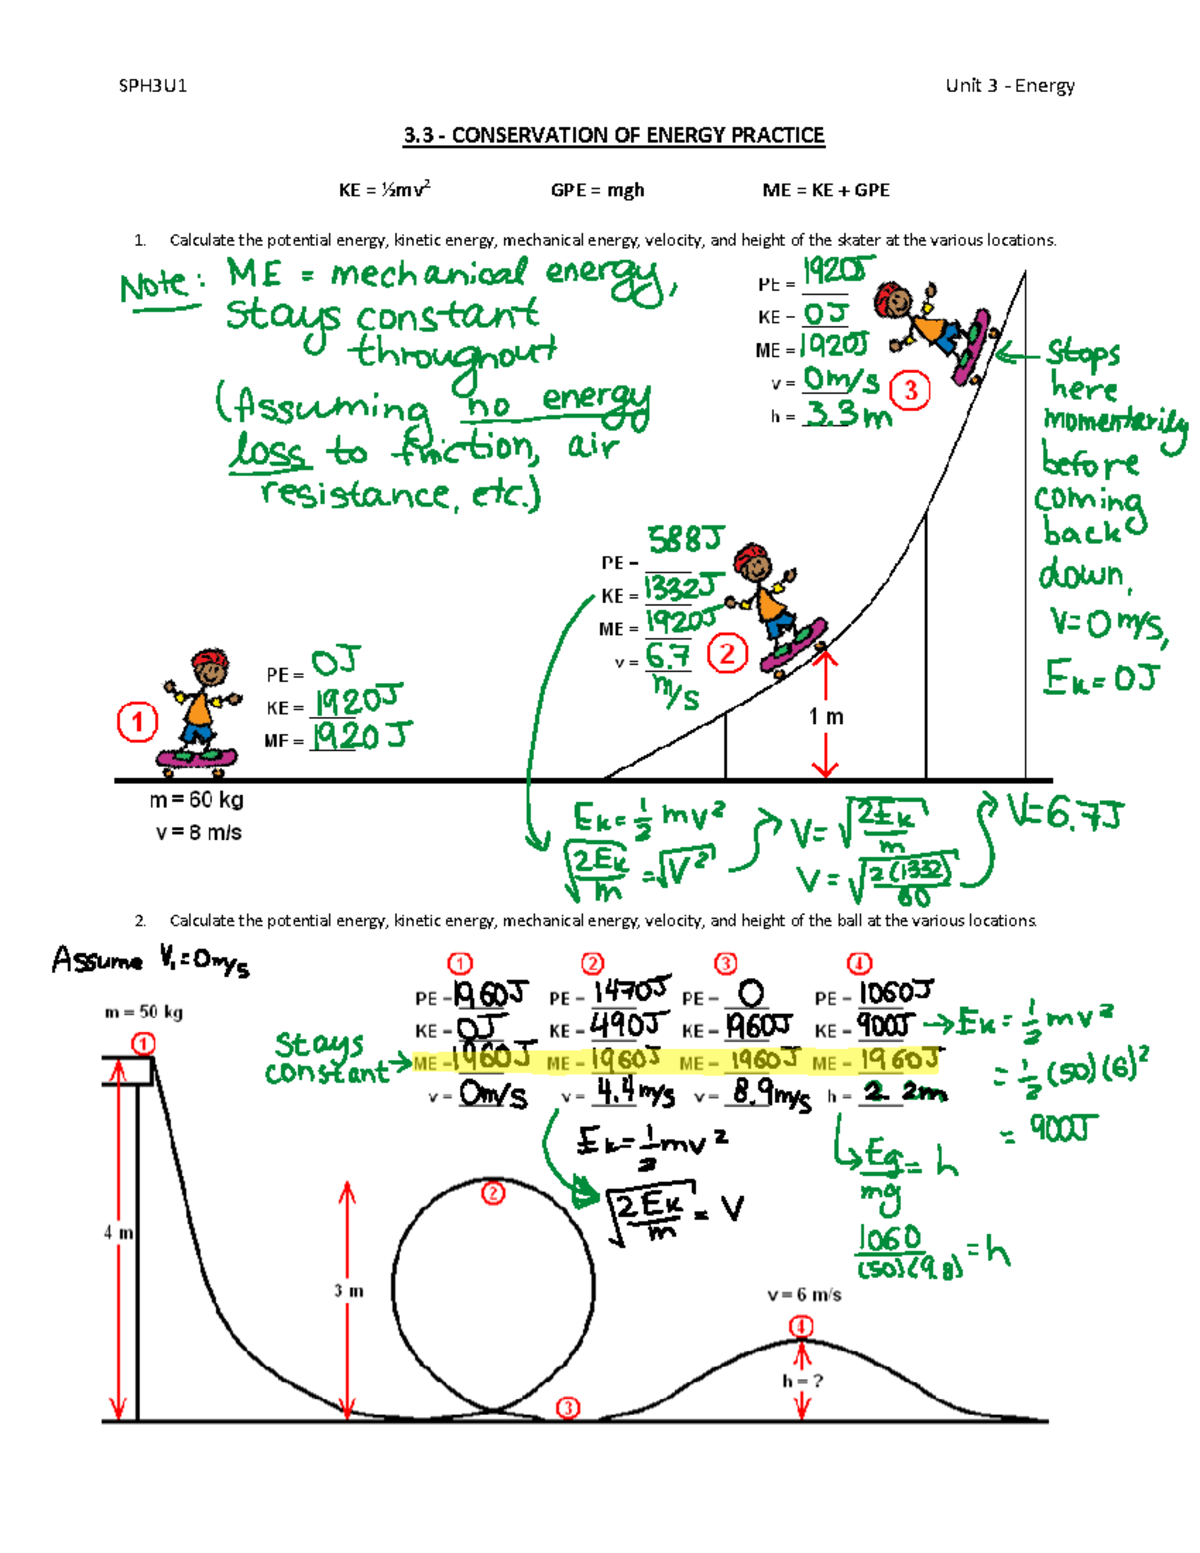 SPH3U1 Unit 3 - Energy
3.3 - CONSERVATION OF ENERGY PRACTICE
KE = ½mv² GPE = mgh ME = KE + GPE
1. Calculate the potential energy, kinetic energy, mechanical energy, velocity, and height of the skater at the various locations.
Note: ME = mechanical energy,
stays constant
throughout
(Assuming no energy
loss to friction, air
resistance, etc.)
PE = 1920J
KE = 0J
ME = 1920J
v = 0m/s
h = 3.3m
3
Stops
here
momentarily
before
coming
back
down,
V=0m/s,
Ek=0J
PE = 588J
KE = 1332J
ME = 1920J
v = 6.7
m/s
2
1 m
1
PE = 0J
KE = 1920J
ME = 1920J
m = 60 kg
v = 8 m/s
Ek=½mv²
√2Ek/m = √V²
V=√2Ek/m
V=√2(1332)/60
V=6.7J
2. Calculate the potential energy, kinetic energy, mechanical energy, velocity, and height of the ball at the various locations.
Assume V₁=0m/s
m = 50 kg
1 2 3 4
PE = 1960J PE = 1470J PE = 0 PE = 1060J
KE = 0J KE = 490J KE = 1960J KE = 900J
ME = 1960J ME = 1960J ME = 1960J ME = 1960J
v = 0m/s v = 4.4m/s v = 8.9m/s h = 2.2m
Stays
constant
Ek=½mv²
=½(50)(6)²
=900J
Ek=½mv²
√2Ek/m = V
Eg/mg = h
1060/(50)(9.8) = h
1
4 m
3 m
2
3
v = 6 m/s
4
h = ?